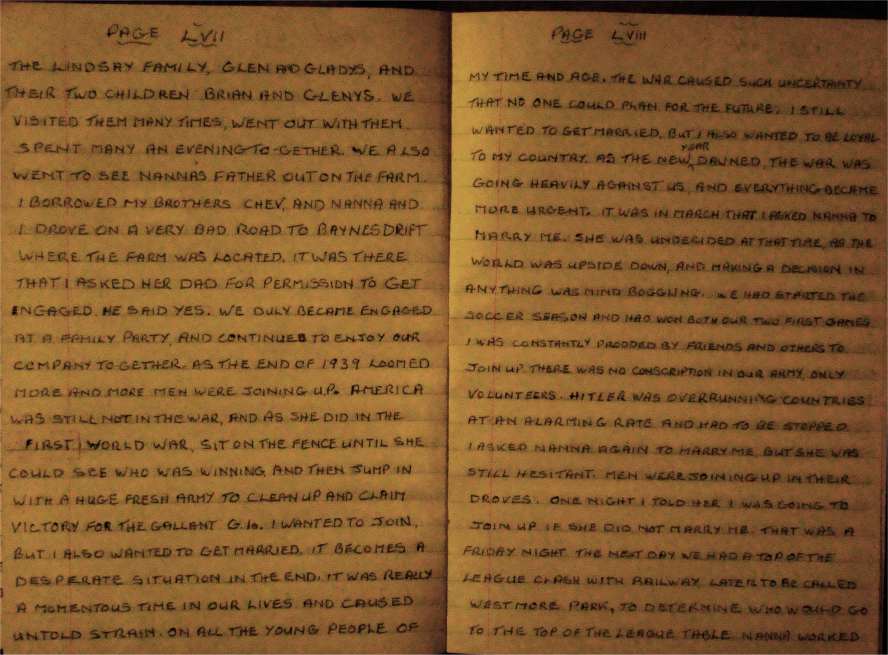 PAGE LVII
THE LINDSAY FAMILY, GLEN AND GLADYS, AND
THEIR TWO CHILDREN BRIAN AND GLENYS. WE
VISITED THEM MANY TIMES, WENT OUT WITH THEM
SPENT MANY AN EVENING TO-GETHER. WE ALSO
WENT TO SEE NANNAS FATHER OUT ON THE FARM.
I BORROWED MY BROTHERS CHEV, AND NANNA AND
I DROVE ON A VERY BAD ROAD TO BAYNESDRIFT
WHERE THE FARM WAS LOCATED. IT WAS THERE
THAT I ASKED HER DAD FOR PERMISSION TO GET
ENGAGED. HE SAID YES. WE DULY BECAME ENGAGED
AT A FAMILY PARTY, AND CONTINUED TO ENJOY OUR
COMPANY TO-GETHER. AS THE END OF 1939 LOOMED
MORE AND MORE MEN WERE JOINING UP. AMERICA
WAS STILL NOT IN THE WAR, AND AS SHE DID IN THE
FIRST WORLD WAR, SIT ON THE FENCE UNTIL SHE
COULD SEE WHO WAS WINNING, AND THEN JUMP IN
WITH A HUGE FRESH ARMY TO CLEAN UP AND CLAIM
VICTORY FOR THE GALLANT G.Is. I WANTED TO JOIN,
BUT I ALSO WANTED TO GET MARRIED. IT BECOMES A
DESPERATE SITUATION IN THE END. IT WAS REALLY
A MOMENTOUS TIME IN OUR LIVES AND CAUSED
UNTOLD STRAIN. ON ALL THE YOUNG PEOPLE OF
PAGE LVIII
MY TIME AND AGE. THE WAR CAUSED SUCH UNCERTAINTY
THAT NO ONE COULD PLAN FOR THE FUTURE. I STILL
WANTED TO GET MARRIED, BUT I ALSO WANTED TO BE LOYAL
TO MY COUNTRY. AS THE NEW YEAR DAWNED, THE WAR WAS
GOING HEAVILY AGAINST US, AND EVERYTHING BECAME
MORE URGENT. IT WAS IN MARCH THAT I ASKED NANNA TO
MARRY ME. SHE WAS UNDECIDED AT THAT TIME, AS THE
WORLD WAS UPSIDE DOWN, AND MAKING A DECISION IN
ANYTHING WAS MIND BOGGLING. WE HAD STARTED THE
SOCCER SEASON AND HAD WON BOTH OUR TWO FIRST GAMES
I WAS CONSTANTLY PRODDED BY FRIENDS AND OTHERS TO
JOIN UP. THERE WAS NO CONSCRIPTION IN OUR ARMY, ONLY
VOLUNTEERS. HITLER WAS OVERRUNNING COUNTRIES
AT AN ALARMING RATE AND HAD TO BE STOPPED.
I ASKED NANNA AGAIN TO MARRY ME, BUT SHE WAS
STILL HESITANT. MEN WERE JOINING UP IN THEIR
DROVES. ONE NIGHT I TOLD HER I WAS GOING TO
JOIN UP IF SHE DID NOT MARRY ME. THAT WAS A
FRIDAY NIGHT. THE NEXT DAY WE HAD A TOP OF THE
LEAGUE CLASH WITH RAILWAY. LATER TO BE CALLED
WESTMORE PARK, TO DETERMINE WHO WOULD GO
TO THE TOP OF THE LEAGUE TABLE. NANNA WORKED